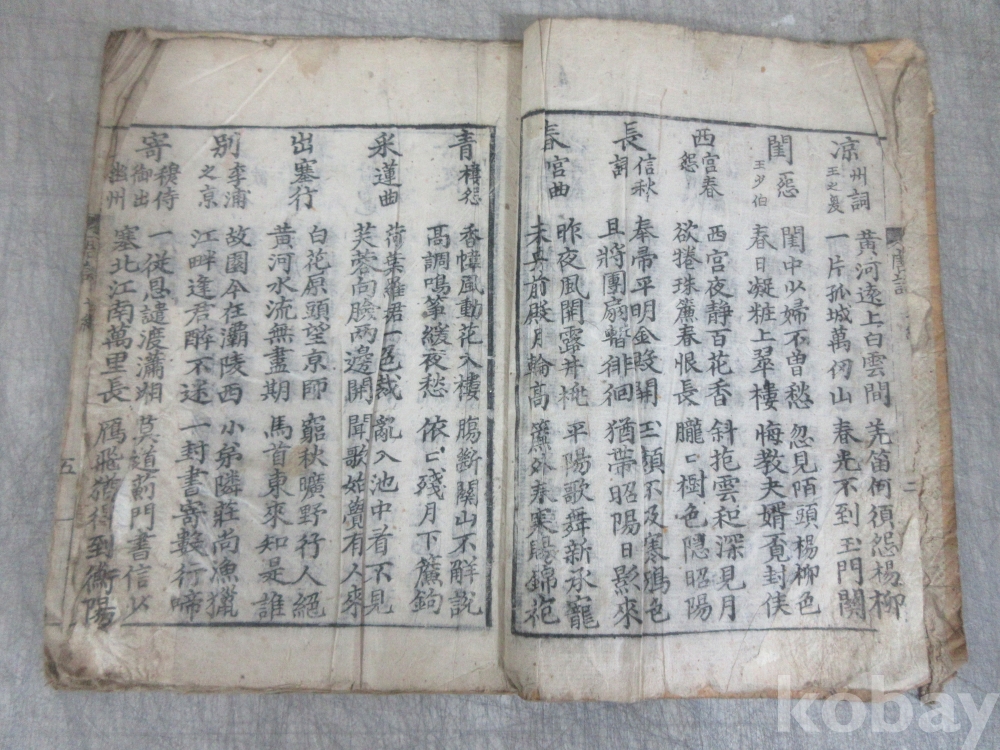 凉州詞
王之
黃河遠上白雲間 羌笛何須怨楊柳
一片孤城萬仞山 春光不到玉門關
閨怨
王少伯
閨中少婦不曾愁 忽見陌頭楊柳色
春日凝粧上翠樓 悔教夫婿覓封侯
西宮春怨
西宮夜静百花香 斜抱雲和深見月
欲捲珠簾春恨長 朧〻樹色隱昭陽
長信秋詞
奉帚平明金殿開 玉顔不及寒鴉色
且將團扇暫徘徊 猶帶昭陽日影來
春宮曲
昨夜風開露井桃 平陽歌舞新承寵
未央前殿月輪高 簾外春寒賜錦袍
青樓怨
香幃風動花入樓 腸斷關山不解說
高調鳴箏緩夜愁 依〻殘月下簾鉤
采蓮曲
荷葉羅裙一色裁 亂入池中看不見
芙蓉向臉兩邊開 聞歌始覺有人來
出塞行
白花原頭望京師 窮秋曠野行人絕
黃河水流無盡期 馬首東來知是誰
別李浦之京
故園今在灞陵西 小弟隣莊尚漁獵
江畔逢君醉不迷 一封書寄數行啼
寄穆侍御出幽州
一從恩譴渡瀟湘 莫道薊門書信少
塞北江南萬里長 鴈飛猶得到衡陽
五
kobay